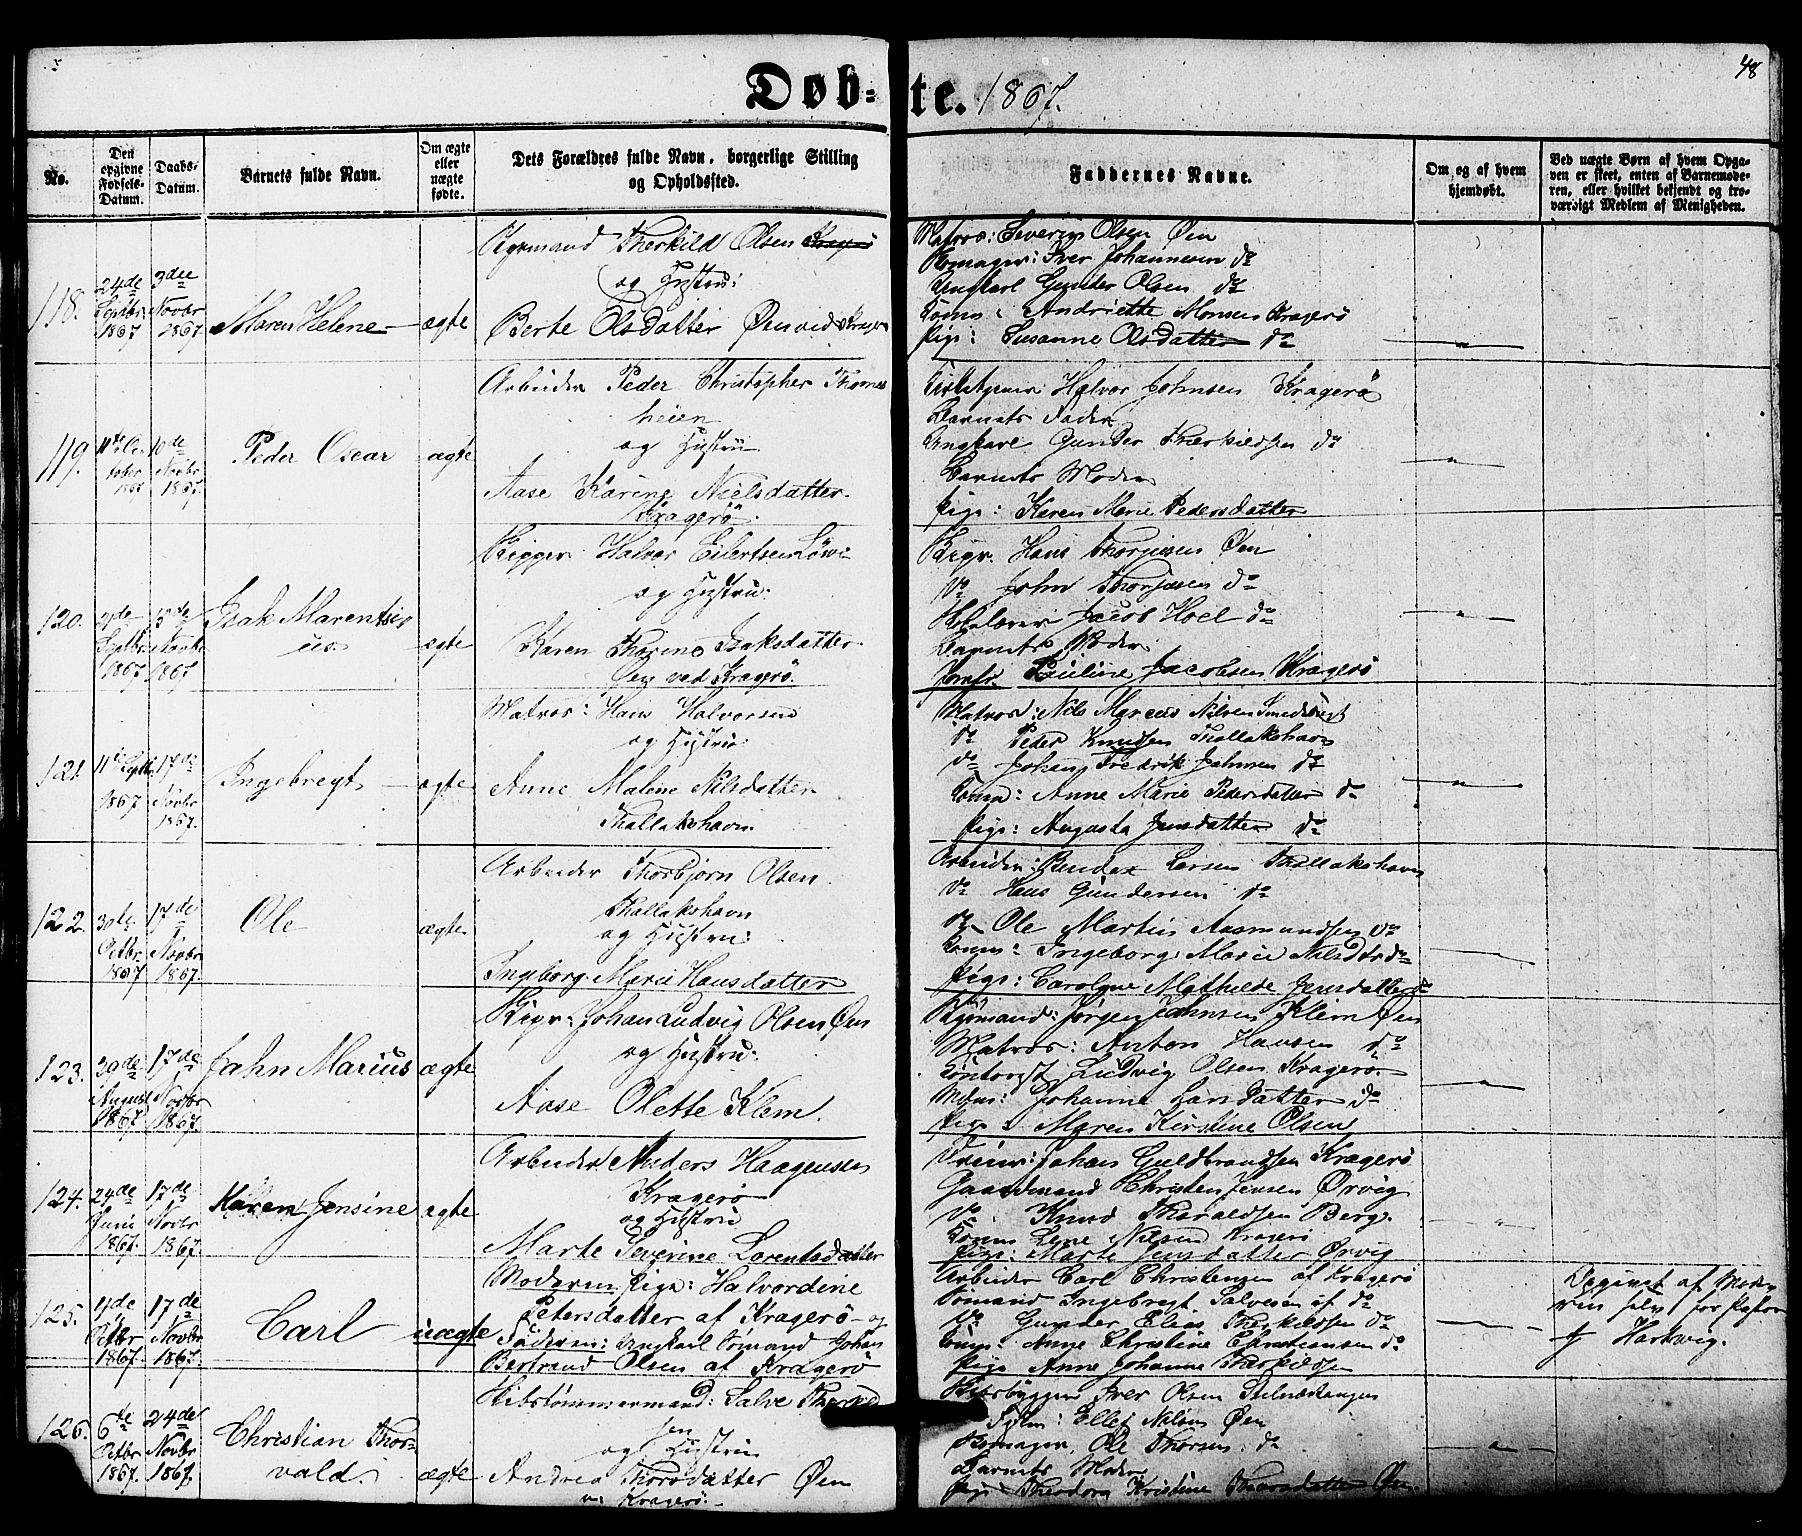 48
Døb- te. 1867.
No.
Den opgivne Fødsels-Datum.
Daabs-Datum.
Barnets fulde Navn.
Om ægte eller uægte fødte.
Dets Forældres fulde Navn, borgerlige Stilling og Opholdssted.
Faddernes Navne.
Om og af hvem hjemdøbt.
Ved uægte Børn af hvem Opgaven er skeet, enten af Barnemoderen, eller hvilket bekjendt og troværdigt Medlem af Menigheden.
118.
24de Septbr. 1867
3die Novbr 1867.
Maren Helene
ægte
Styrmand Therkild Olsen
og Hustru:
Berte Olsdatter Øen ved Kragerø
Matros: Severin Olsen Øen
Iver Johannesen do
Ungkarl Gunder Olsen do
Andriette Monsen Kragerø
Pige: Susanne Olsdatter do
119.
10de Novbr. 1867.
Peder Oscar
ægte
Arbeider Peder Christopher Thomas
heien
og Hustru
Aase Karine Nielsdatter
Kragerö.
Halvor Johnsen Kragerö
Barnets Fader
Ungkarl Gunder Therkildsen do
Barnets Moder
Pige: Karen Marie Pedersdatter
120.
Septbr. 1867
Novbr 1867
Isak Marentsi
us
ægte
Rigger Halvor Eilertsen
og Hustru:
Karen Thorine Isaksdatter
Øen ved Kragerö.
Hans Thorjusen Øen
do John Thorjusen do
Jacob Hoel do
Barnets Moder
Jomfr. Pauline Jacobsen Kragerö
121.
11te Septbr 1867
17de Novbr 1867.
Ingebregt
ægte
Matros: Hans Halvorsen
og Hustru:
Anne Malene Nilsdatter
Thallakshavn.
Matros: Nils Marcus Nilsen
do Peder Knudsen Thallakshavn
do Johan Fredrik Jahnsen do
Kone: Anne Marie Pedersdatter do
Pige: Augusta Jensdatter do
122.
30te Octbr. 1867
17de Novbr 1867.
Ole
ægte
Arbeider Thorbjørn Olsen
Thallakshavn
og Hustru:
Ingeborg Marie Hansdatter
Arbeider: Larsen Thallakshavn
do Hans Gundersen do
do Ole Martin Aasmundsen do
Kone: Ingeborg Marie Nilsdtr do
Pige: Carolyne Mathilde Jensdatter do
123.
August 1867
17de Novbr 1867.
Jahn Marius
ægte
Johan Ludvig Olsen Øen
og Hustru:
Aase Olette Klem.
Styrmand: Jørgen Jahnsen Klem Øen
Matros: Anton Hansen do
Contorist Ludvig Olsen Kragerø
Johanne Larsdatter do
Pige: Maren Kirstine Olsen
124.
24de Juni 1867.
17de Novbr 1867.
Karen Jensine
ægte
Arbeider Anders Haagensen
Kragerø
og Hustru
Marte Severine Lorentsdatter
Johan Guldbrandsen Kragerø
Gaardmand Christen Jensen Ørvig
do Knud Tharaldsen Berg.
Kone Lene Nilsen Kragerö
Pige: Marte Jensdatter Ørvig
125.
Octbr 1867.
17de Novbr 1867.
Carl
uægte
Moderen Pige: Halvordine
Petersdatter af Kragerø og
Faderen: Ungkarl Sømand Johan
Bertrand Olsen af Kragerø
Arbeider Carl Christensen af Kragerö
Sømand Ingebregt Salvesen af do
do Gunder Elias Therkildsen do
Kone: Anne Christine Christiansen do
Pige Anne Johanne Therkildsen
Opgivet af Mode
ren selv for Pastor
Hartvig.
126.
6te Octbr 1867.
24de Novbr 1867.
Christian Thor-
vald
ægte
Skibstømmermand: Salve Therkild
sen
og Hustru
Andrea Thorsdatter Øen
v. Kragerö.
Skibsbygger Iver Olsen
Ellef Nilsen Øen
Ole Thorsen do
Barnets Moder
Pige Theodora Kristine Thorsdatter Øen